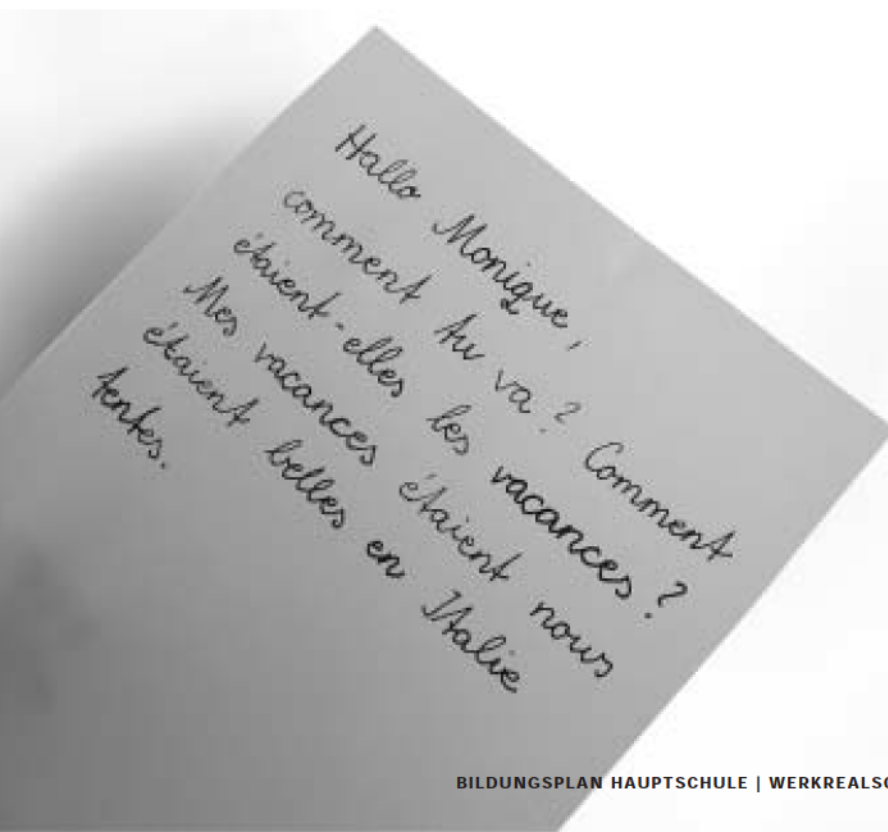 Hallo Monique,
comment tu va? Comment
étaient-elles les vacances?
Mes vacances étaient nous
étaient belles en Italie
tentes.
BILDUNGSPLAN HAUPTSCHULE | WERKREALSC